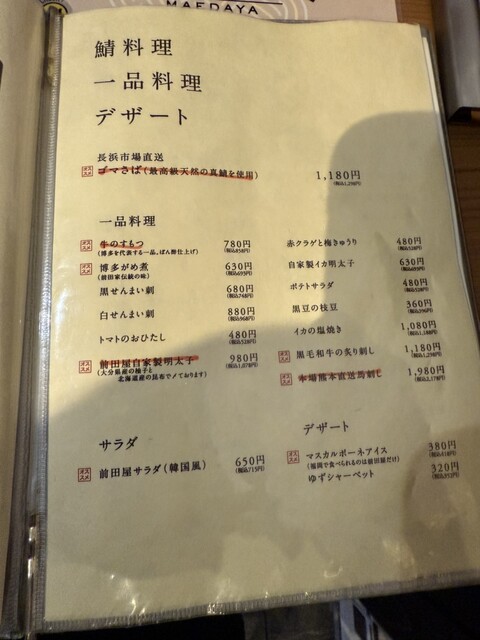 MAEDAYA
鯖料理
一品料理
デザート
長浜市場直送
オススメ ゴマさば(最高級天然の真鯖を使用) 1,180円
(税込1,298円)
一品料理
オススメ 牛のすもつ 780円
(博多を代表する一品、ぽん酢仕上げ) (税込858円)
オススメ 博多がめ煮 630円
(前田家伝統の味) (税込693円)
黒せんまい刺 680円
(税込748円)
白せんまい刺 880円
(税込968円)
トマトのおひたし 480円
(税込528円)
オススメ 前田屋自家製明太子 980円
(大分県産の柚子と (税込1,078円)
北海道産の昆布で〆ております)
赤クラゲと梅きゅうり 480円
(税込528円)
自家製イカ明太子 630円
(税込693円)
ポテトサラダ 480円
(税込528円)
黒豆の枝豆 360円
(税込396円)
イカの塩焼き 1,080円
(税込1,188円)
オススメ 黒毛和牛の炙り刺し 1,180円
(税込1,298円)
オススメ 本場熊本直送馬刺し 1,980円
(税込2,178円)
サラダ
オススメ 前田屋サラダ(韓国風) 650円
(税込715円)
デザート
オススメ マスカルポーネアイス 380円
(福岡で食べられるのは前田屋だけ) (税込418円)
ゆずシャーベット 320円
(税込352円)